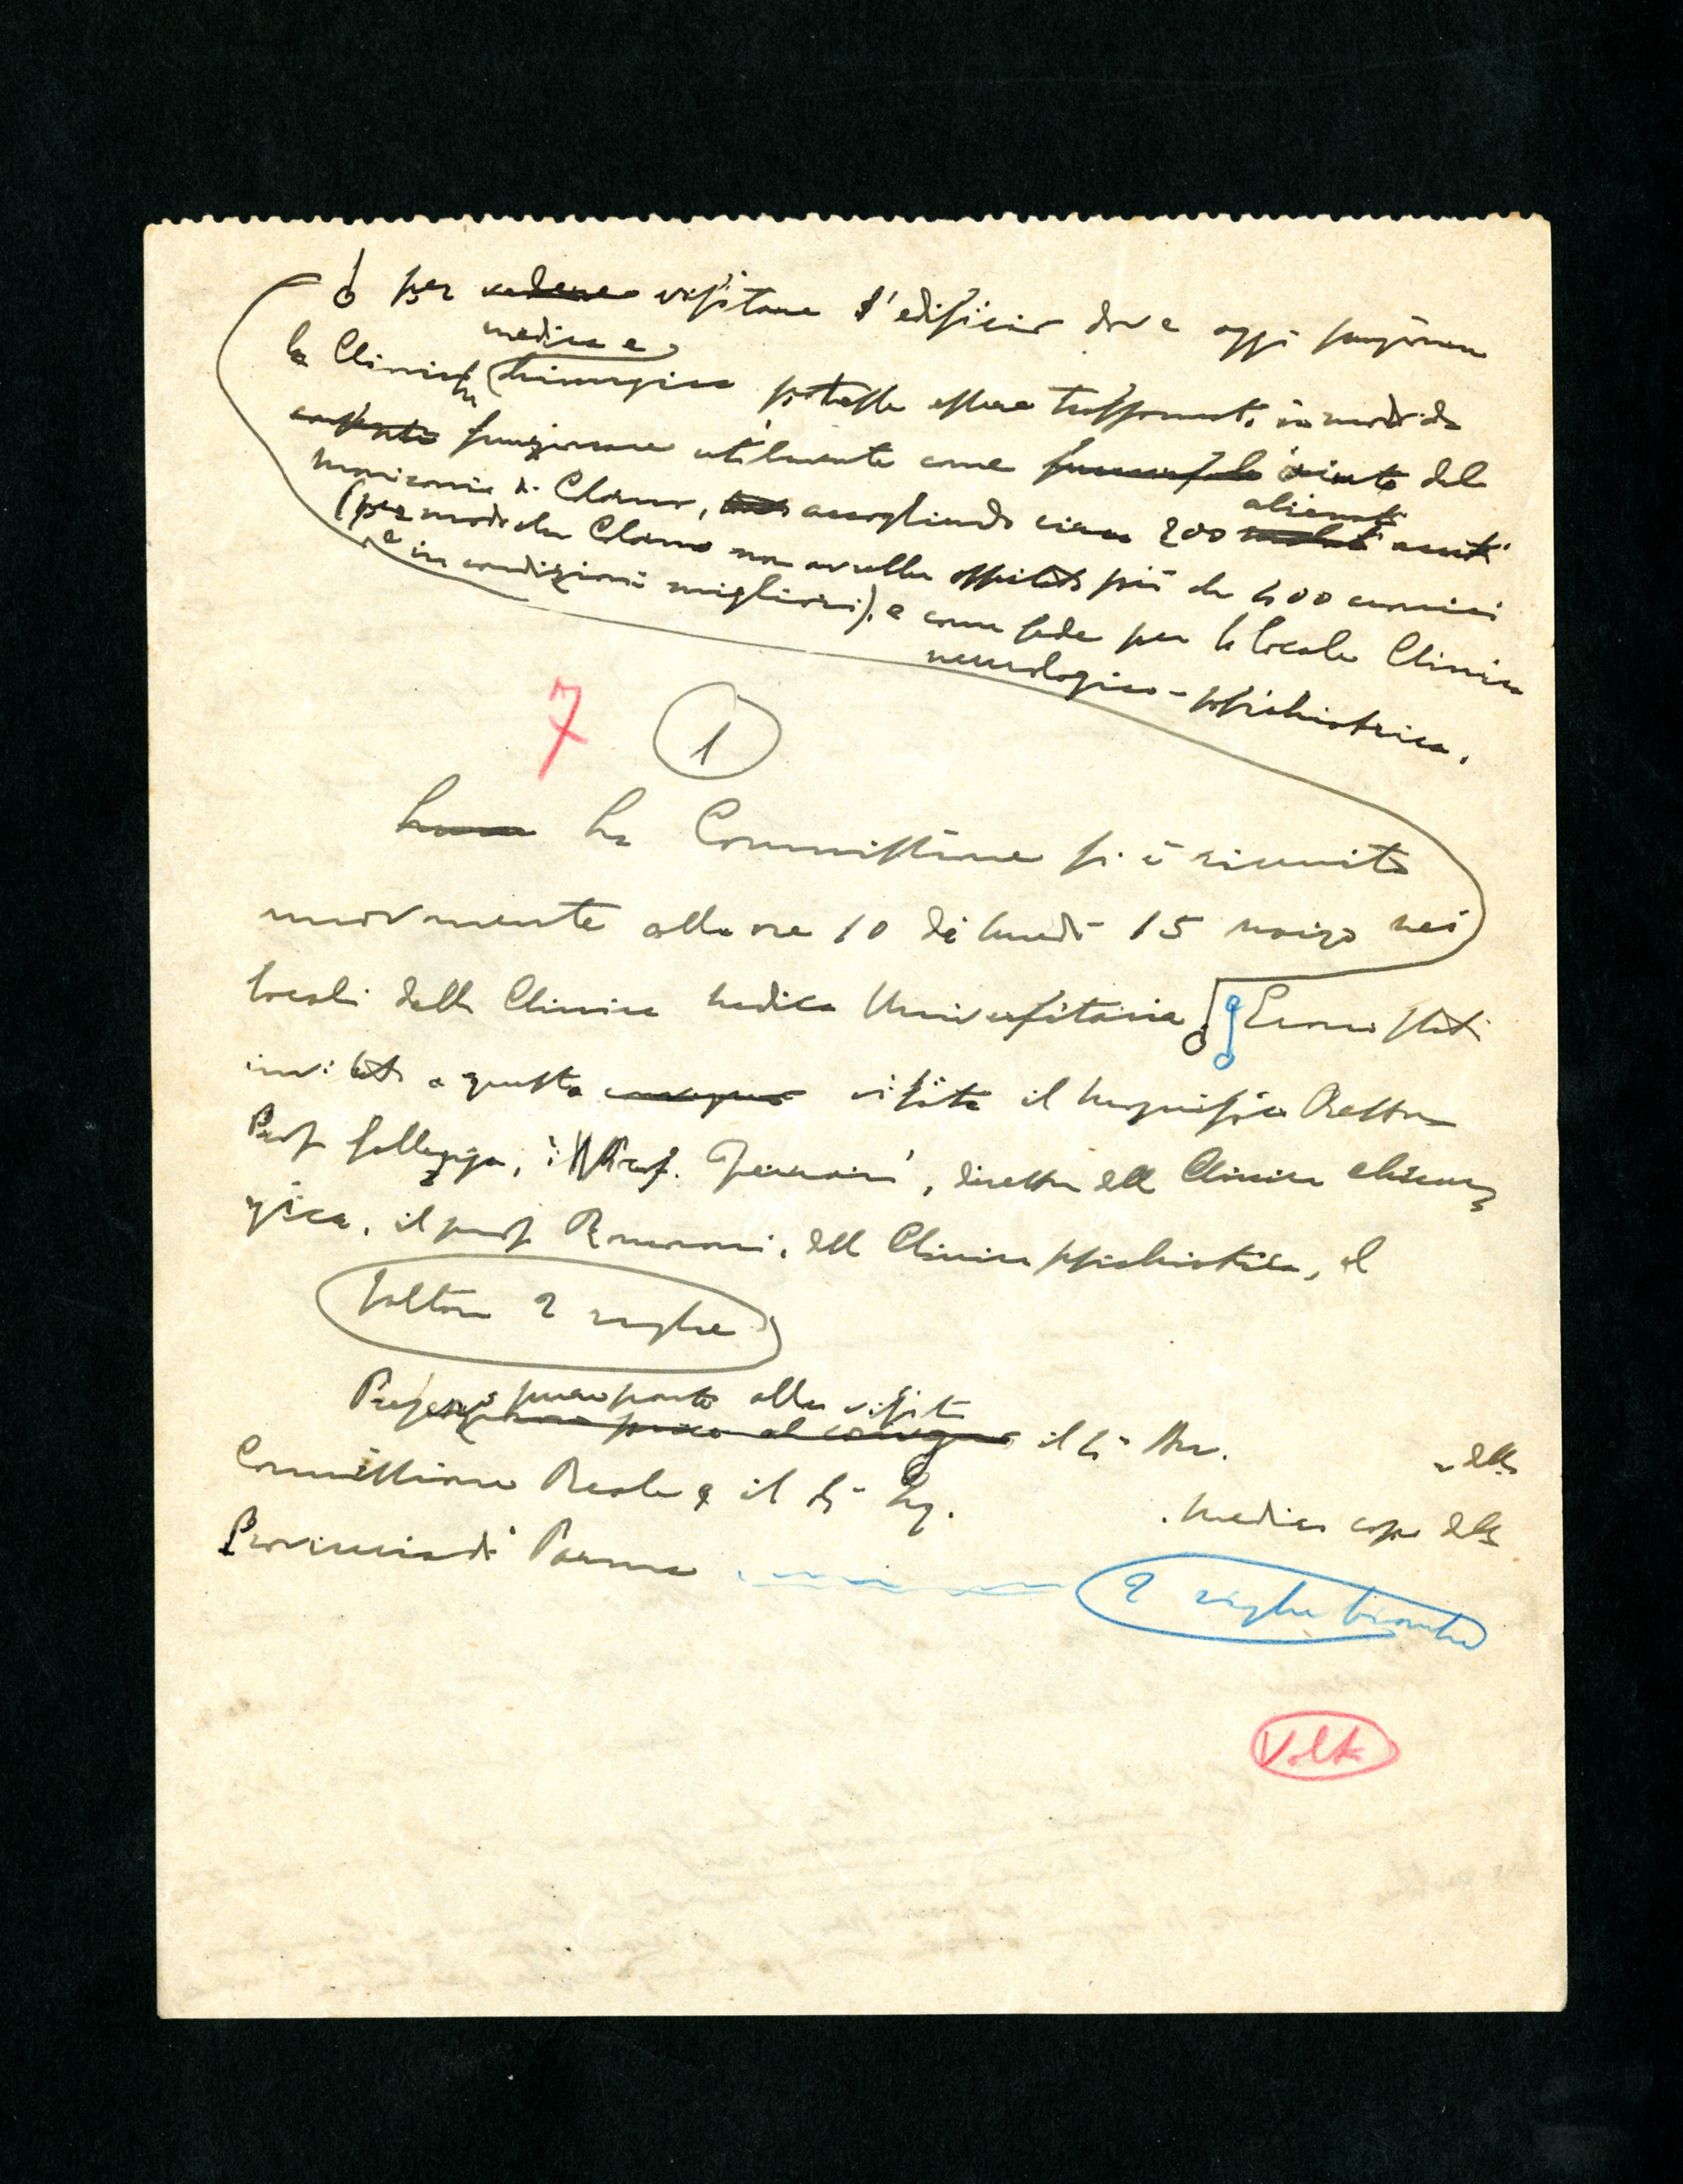 per vedere visitare l'edificio dove oggi funzionano
medica e
le Cliniche chirurgica potesse essere trasformato in modo da
funzionare utilmente come aiuto del
manicomio di Colorno, accogliendo circa 200 alienati acuti
(per modo che Colorno non avrebbe ospitato più che 400 cronici
e in condizioni migliori), e come sede per la locale Clinica
neurologico-psichiatrica.
7 1
La Commissione si è riunita
nuovamente alle ore 10 di lunedì 15 marzo nei
locali della Clinica medica Universitaria Erano stati
invitati a questa visita il magnifico Rettore
Prof. Gallenga, il Prof. Ferrari, direttore della Clinica chirur-
gica, il prof. della Clinica psichiatrica, il
saltare 2 righe
Prese pure parte alla visita
il Sr Avv. della
Commissione Reale e il Sr Ing. . medico capo della
Provincia di Parma
2 righe bianche
Volta